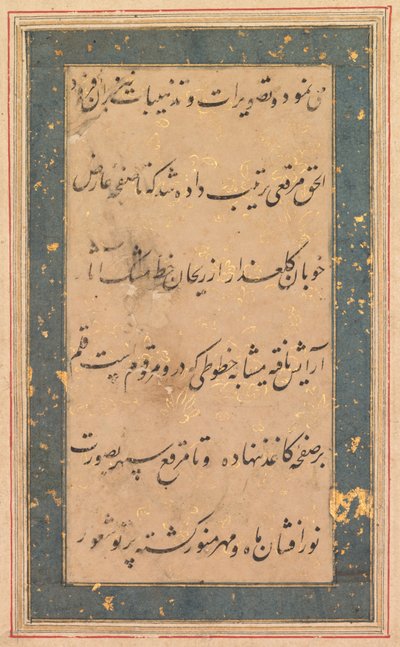 می نمود و تصویرات و تذهیبات نیز بران افزود
الحق مرقعی ترتیب داده شد که تا صفحه عارض
خوبان گلعذار از ریحان خط مشک
آرایش یافته مشابه خطوطی که درو مرقومست قلم
بر صفحه کاغذ ننهاده و تا مرقع سپهر بصورت
نور افشان ماه و مهر منور گشته پرتو شعور